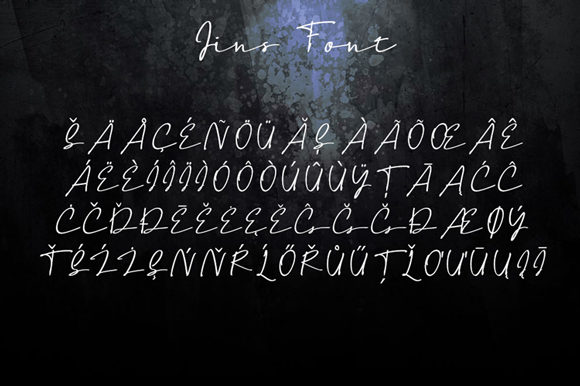 Jins Font
Š Ä Å Ç É Ñ Ö Ü Ă Ş À Ã Õ Œ Â Ê
Á Ë È Í Î Ï Ì Ó Ô Ò Ú Û Ù Ÿ Ț Ā A Ć Ĉ
Ċ Č Ď Đ Ē Ě Ė Ę Ĕ Ĝ Ğ Ğ Đ Æ Ø Ý
Ť Ś Ź Ż Ş Ń Ň Ŕ Ĺ Ő Ř Ů Ű Ț Ľ Ơ Ư Ū Ų Į Ī